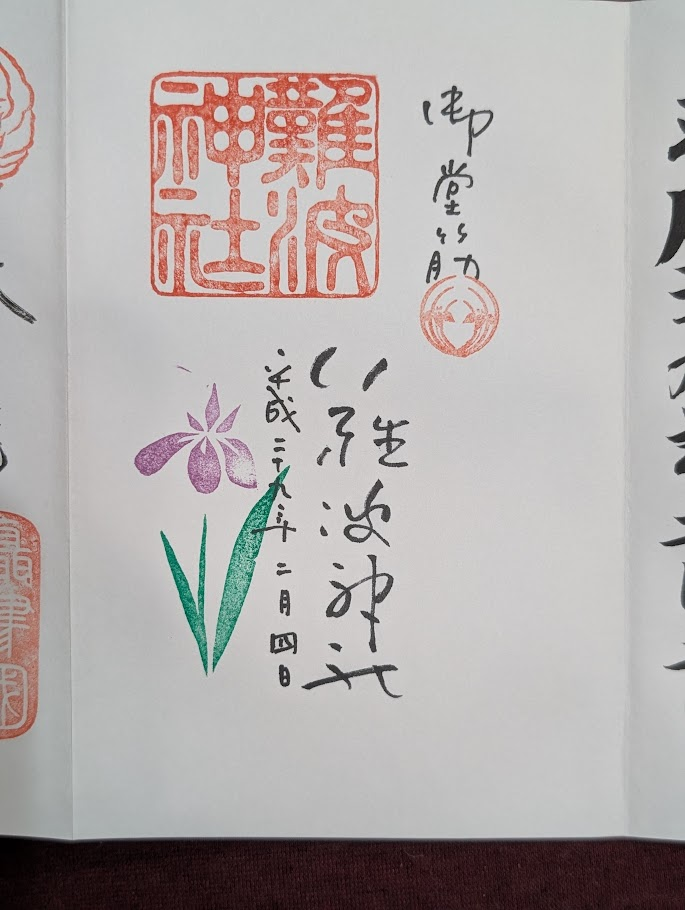 御堂筋
難波神社
平成二十九年二月四日
難波神社